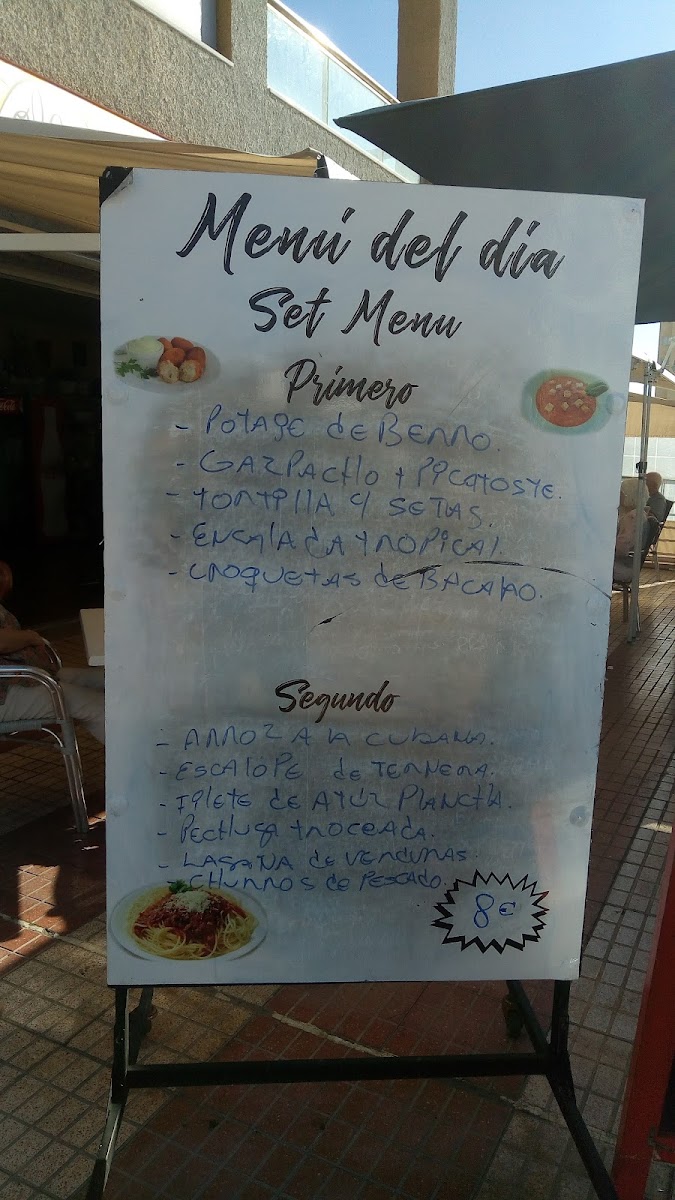 Menú del día
Set Menu
Primero
- POTAJE de BERRO.
- GAZPACHO + PICATOSTE.
- TORTILLA Y SETAS.
- ENSALADA TROPICAL.
- CROQUETAS de BACALAO.
Segundo
- ARROZ A LA CUBANA.
- ESCALOPE de TERNERA.
- FILETE de ATÚN PLANCHA.
- PECHUGA TROCEADA.
- LASAÑA de VERDURAS.
- CHURROS de PESCADO.
8€